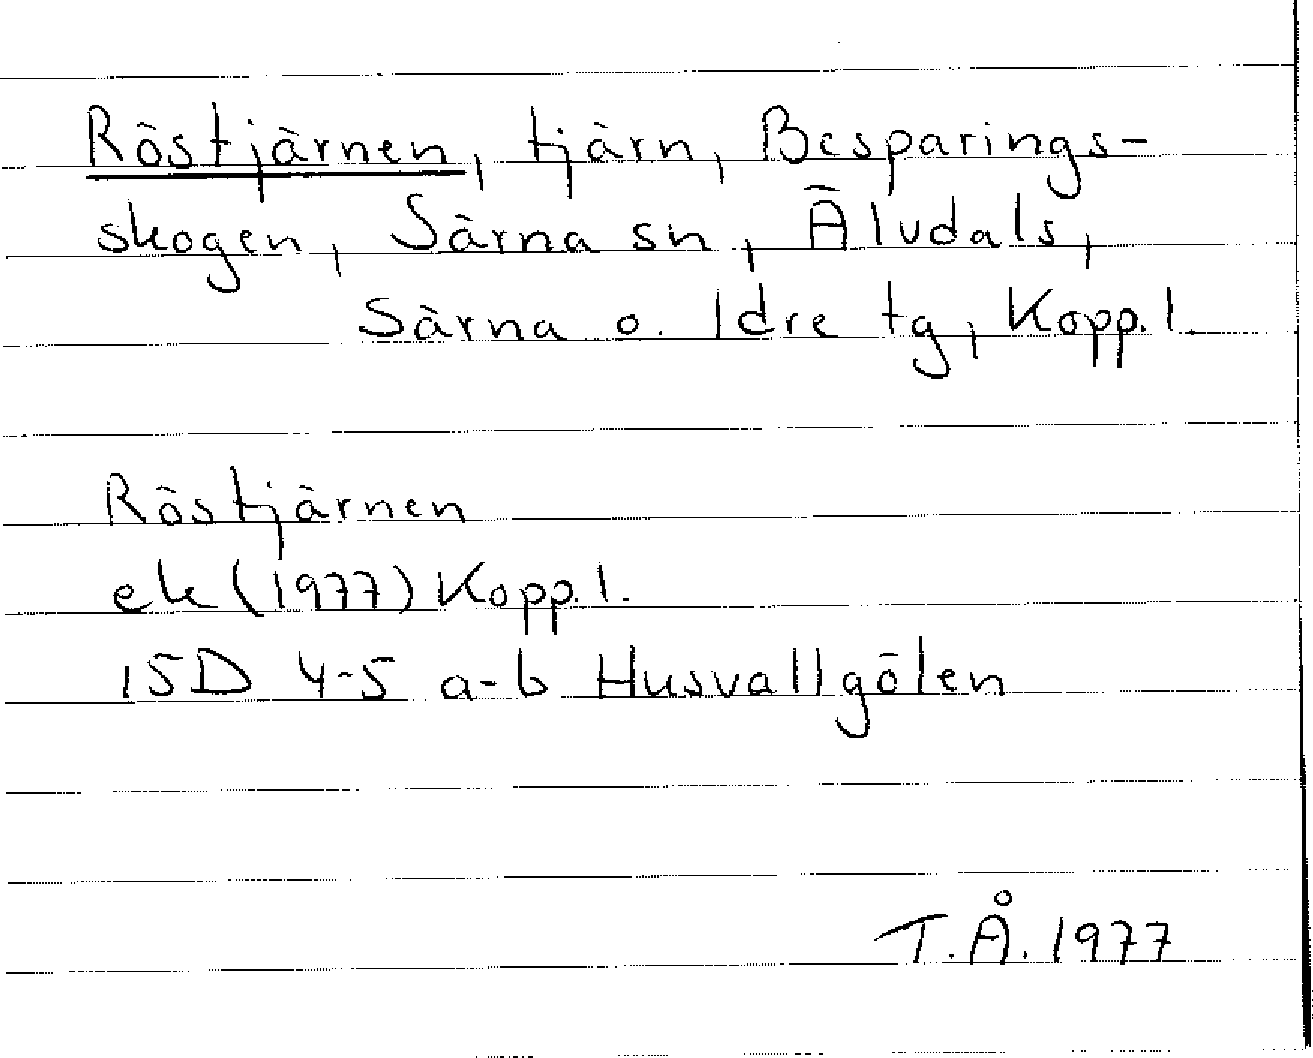 Röstjärnen, tjärn, Besparings-
skogen, Särna sn, Älvdals,
Särna o. Idre tg, Kopp. l.
Röstjärnen
ek (1977) Kopp. l.
15D 4-5 a-b Husvallgölen
T.Å. 1977